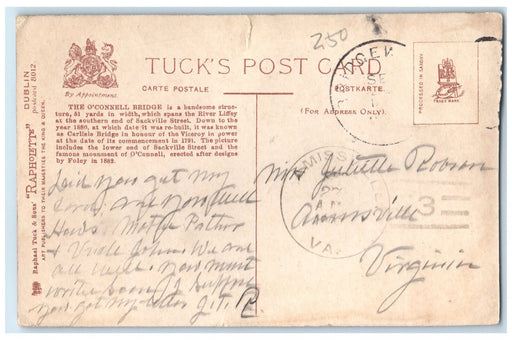 250
TUCK'S POST CARD
By Appointment.
CARTE POSTALE
POSTKARTE
(FOR ADDRESS ONLY).
PROCESSED IN SAXONY
TRADE MARK
DUBLIN
postcard 8012
"RAPHOTETTE"
Raphael Tuck & Sons'
ART PUBLISHERS TO THEIR MAJESTIES THE KING & QUEEN.
THE O'CONNELL BRIDGE is a handsome struc-
ture, 51 yards in width, which spans the River Liffey
at the southern end of Sackville Street. Down to the
year 1880, at which date it was re-built, it was known
as Carlisle Bridge in honour of the Viceroy in power
at the date of its commencement in 1791. The picture
includes the lower end of Sackville Street and the
famous monument of O'Connell, erected after designs
by Foley in 1882.
Did you get my
card. are you well
Hows Mother Father
& Uncle John. We are
all well. you must
write soon. I suppose
you got my letter J.T.R.
Miss Juliette Robson
ville
Virginia
VA.
3